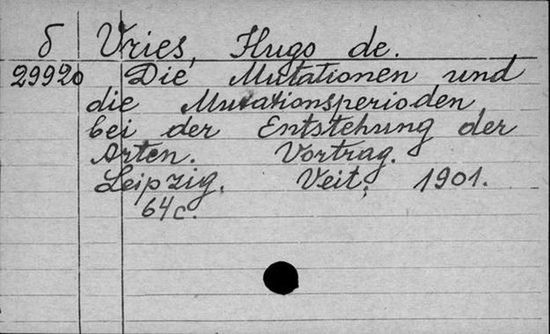 δ Vries, Hugo de.
29920 Die Mutationen und
die Mutationsperioden
bei der Entstehung der
Arten. Vortrag.
Leipzig. Veit, 1901.
64c.